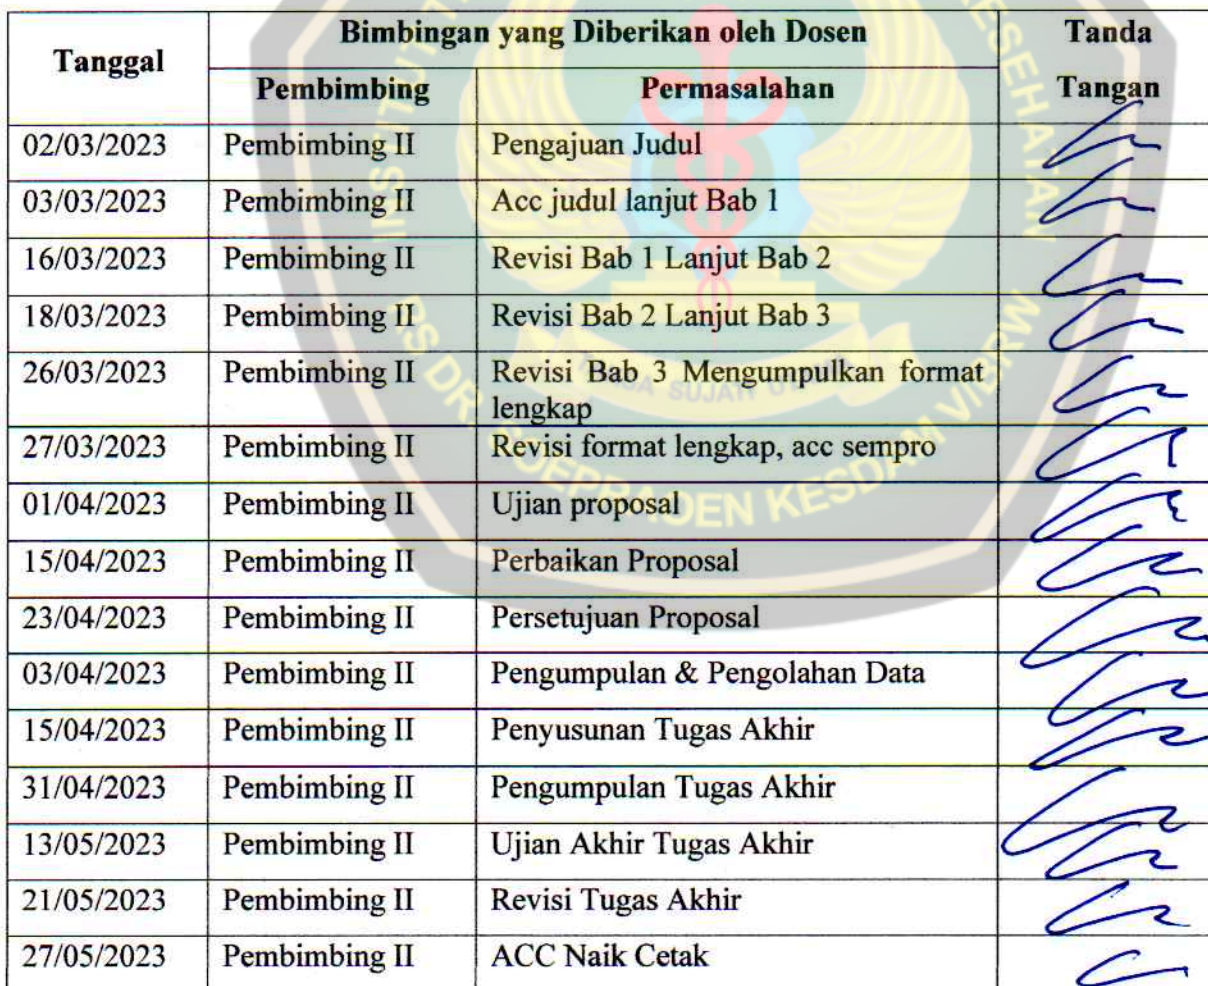 Tanggal Bimbingan yang Diberikan oleh Dosen Tanda Tangan
Pembimbing Permasalahan
02/03/2023 Pembimbing II Pengajuan Judul
03/03/2023 Pembimbing II Acc judul lanjut Bab 1
16/03/2023 Pembimbing II Revisi Bab 1 Lanjut Bab 2
18/03/2023 Pembimbing II Revisi Bab 2 Lanjut Bab 3
26/03/2023 Pembimbing II Revisi Bab 3 Mengumpulkan format
lengkap
27/03/2023 Pembimbing II Revisi format lengkap, acc sempro
01/04/2023 Pembimbing II Ujian proposal
15/04/2023 Pembimbing II Perbaikan Proposal
23/04/2023 Pembimbing II Persetujuan Proposal
03/04/2023 Pembimbing II Pengumpulan & Pengolahan Data
15/04/2023 Pembimbing II Penyusunan Tugas Akhir
31/04/2023 Pembimbing II Pengumpulan Tugas Akhir
13/05/2023 Pembimbing II Ujian Akhir Tugas Akhir
21/05/2023 Pembimbing II Revisi Tugas Akhir
27/05/2023 Pembimbing II ACC Naik Cetak
RS DR. SOEPRAOEN KESDAM V/BRW
KESEHATAN
SUJATI